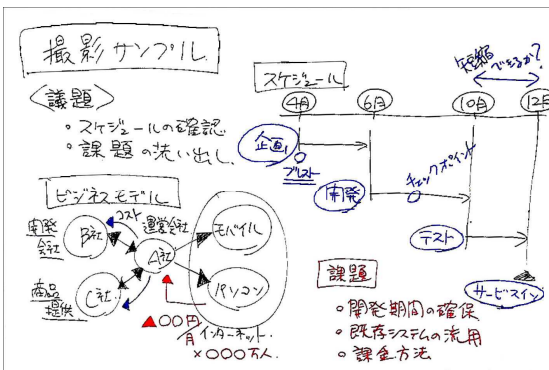 撮影サンプル
〈議題〉
・スケジュールの確認
・課題の洗い出し
ビジネスモデル
開発会社
B社
コスト
運営会社
A社
商品提供
C社
モバイル
パソコン
インターネット
▲〇〇円/月
×〇〇〇万人
スケジュール
短縮できるか?
4月
6月
10月
12月
企画
ブレスト
開発
チェックポイント
テスト
サービスイン
課題
・開発期間の確保
・既存システムの流用
・課金方法